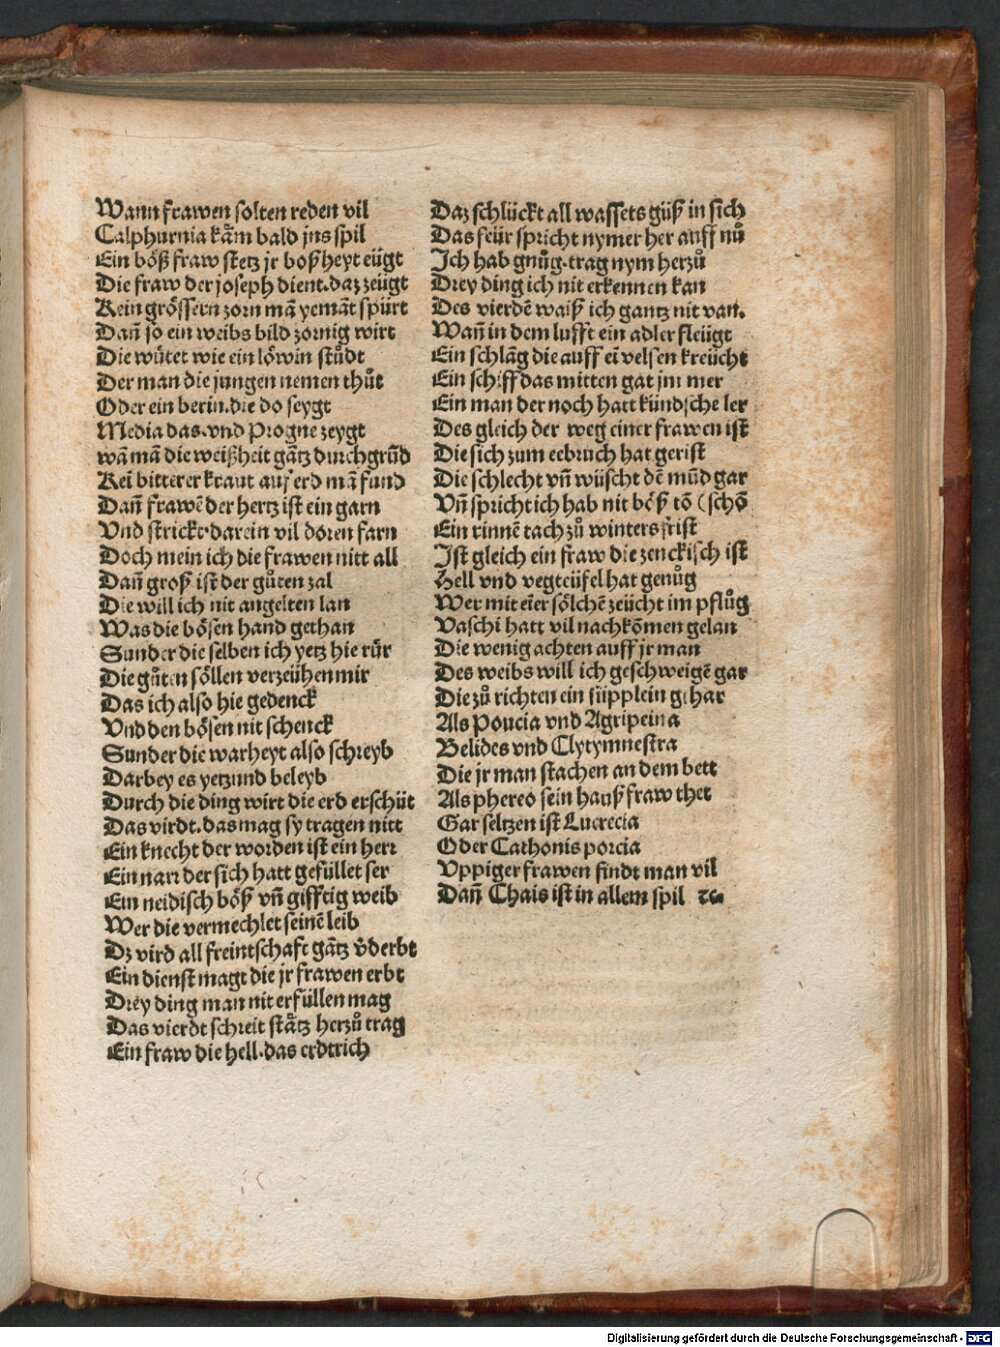 Wann frawen solten reden vil
Calphurnia kãm bald jns spil
Ein böß fraw stetz jr boßheyt eügt
Die fraw der joseph dient.daz zeügt
Kein grössern zorn mã yemãt spürt
Dañ so ein weibs bild zornig wirt
Die wůtet wie ein löwin stůdt
Der man die jungen nemen thůt
Oder ein berin.die do seygt
Media das.vnd Progne zeygt
wã mã die weißheit gãtz durchgrüd
Kei bitterer kraut auf erd mã fund
Dañ frawẽ der hertz ist ein garn
Vnd strickt darein vil doren farn
Doch mein ich die frawen nitt all
Dañ groß ist der gůten zal
Die will ich nit angelten lan
Was die bösen hand gethan
Sunder die selben ich yetz hie růr
Die gůten söllen verzeühen mir
Das ich also hie gedenck
Vnd den bösen nit schenck
Sunder die warheyt also schreyb
Darbey es yetzund beleyb
Durch die ding wirt die erd erschüt
Das virdt.das mag sy tragen nitt
Ein knecht der worden ist ein herr
Ein narr der sich hatt gefüllet ser
Ein neidisch böß vñ gifftig weib
Wer die vermechlet seinẽ leib
Dz vird all freintschaft gãtz v̄derbt
Ein dienst magt die jr frawen erbt
Drey ding man nit erfüllen mag
Das vierdt schreit stätz herzů trag
Ein fraw die hell.das erdtrich
Daz schlückt all wassets güß in sich
Das feür spricht nymer her auff nů
Ich hab gnůg.trag nym herzů
Drey ding ich nit erkennen kan
Des vierdẽ waiß ich gantz nit van.
Wañ in dem lufft ein adler fleügt
Ein schlãg die auff ei velsen kreücht
Ein schiff das mitten gat jm mer
Ein man der noch hatt kündsche ler
Des gleich der weg einer frawen ist
Die sich zum eebruch hat gerist
Die schlecht vñ wüscht dẽ mũd gar
Vñ spricht ich hab nit böß tõ (schõ
Ein rinnẽ tach zů winters frist
Ist gleich ein fraw die zenckisch ist
Hell vnd vegteüfel hat genůg
Wer mit eier sölchẽ zeücht im pflůg
Vaschi hatt vil nachkõmen gelan
Die wenig achten auff jr man
Des weibs will ich geschweigẽ gar
Die zů richten ein süpplein gehar
Als Poucia vnd Agripeina
Belides vnd Clytymnestra
Die jr man stachen an dem bett
Als phereo sein hauß fraw thet
Gar seltzen ist Lucrecia
Oder Cathonis porcia
Vppiger frawen findt man vil
Dañ Chais ist in allem spil ꝛc.
Digitalisierung gefördert durch die Deutsche Forschungsgemeinschaft - DFG